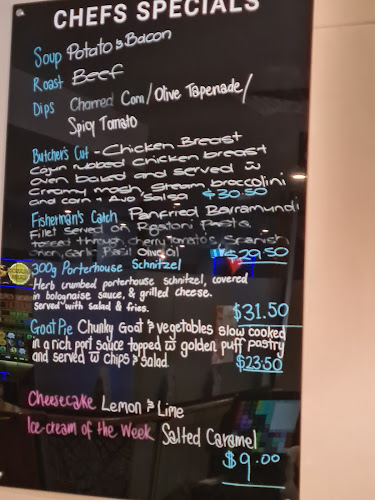 CHEFS SPECIALS
Soup Potato & Bacon
Roast Beef
Dips Charred Corn/Olive Tapenade/
Spicy Tomato
Butcher's Cut - Chicken Breast
Cajun rubbed chicken breast
oven baked and served w
creamy mash, steam broccolini
and corn + Avo Salsa $30.50
Fisherman's Catch Panfried Barramundi
fillet served on Rigatoni Pasta
tossed through cherry tomatoes, Spanish
onion, garlic Basil Olive oil $29.50
300g Porterhouse Schnitzel
Herb crumbed porterhouse schnitzel, covered
in bolognaise sauce, & grilled cheese.
served with salad & fries.
$31.50
Goat Pie Chunky Goat & vegetables slow cooked
in a rich port sauce topped w golden puff pastry
and served w chips & salad. $23.50
Cheesecake Lemon & Lime
Ice-cream of the Week Salted Caramel
$9.00